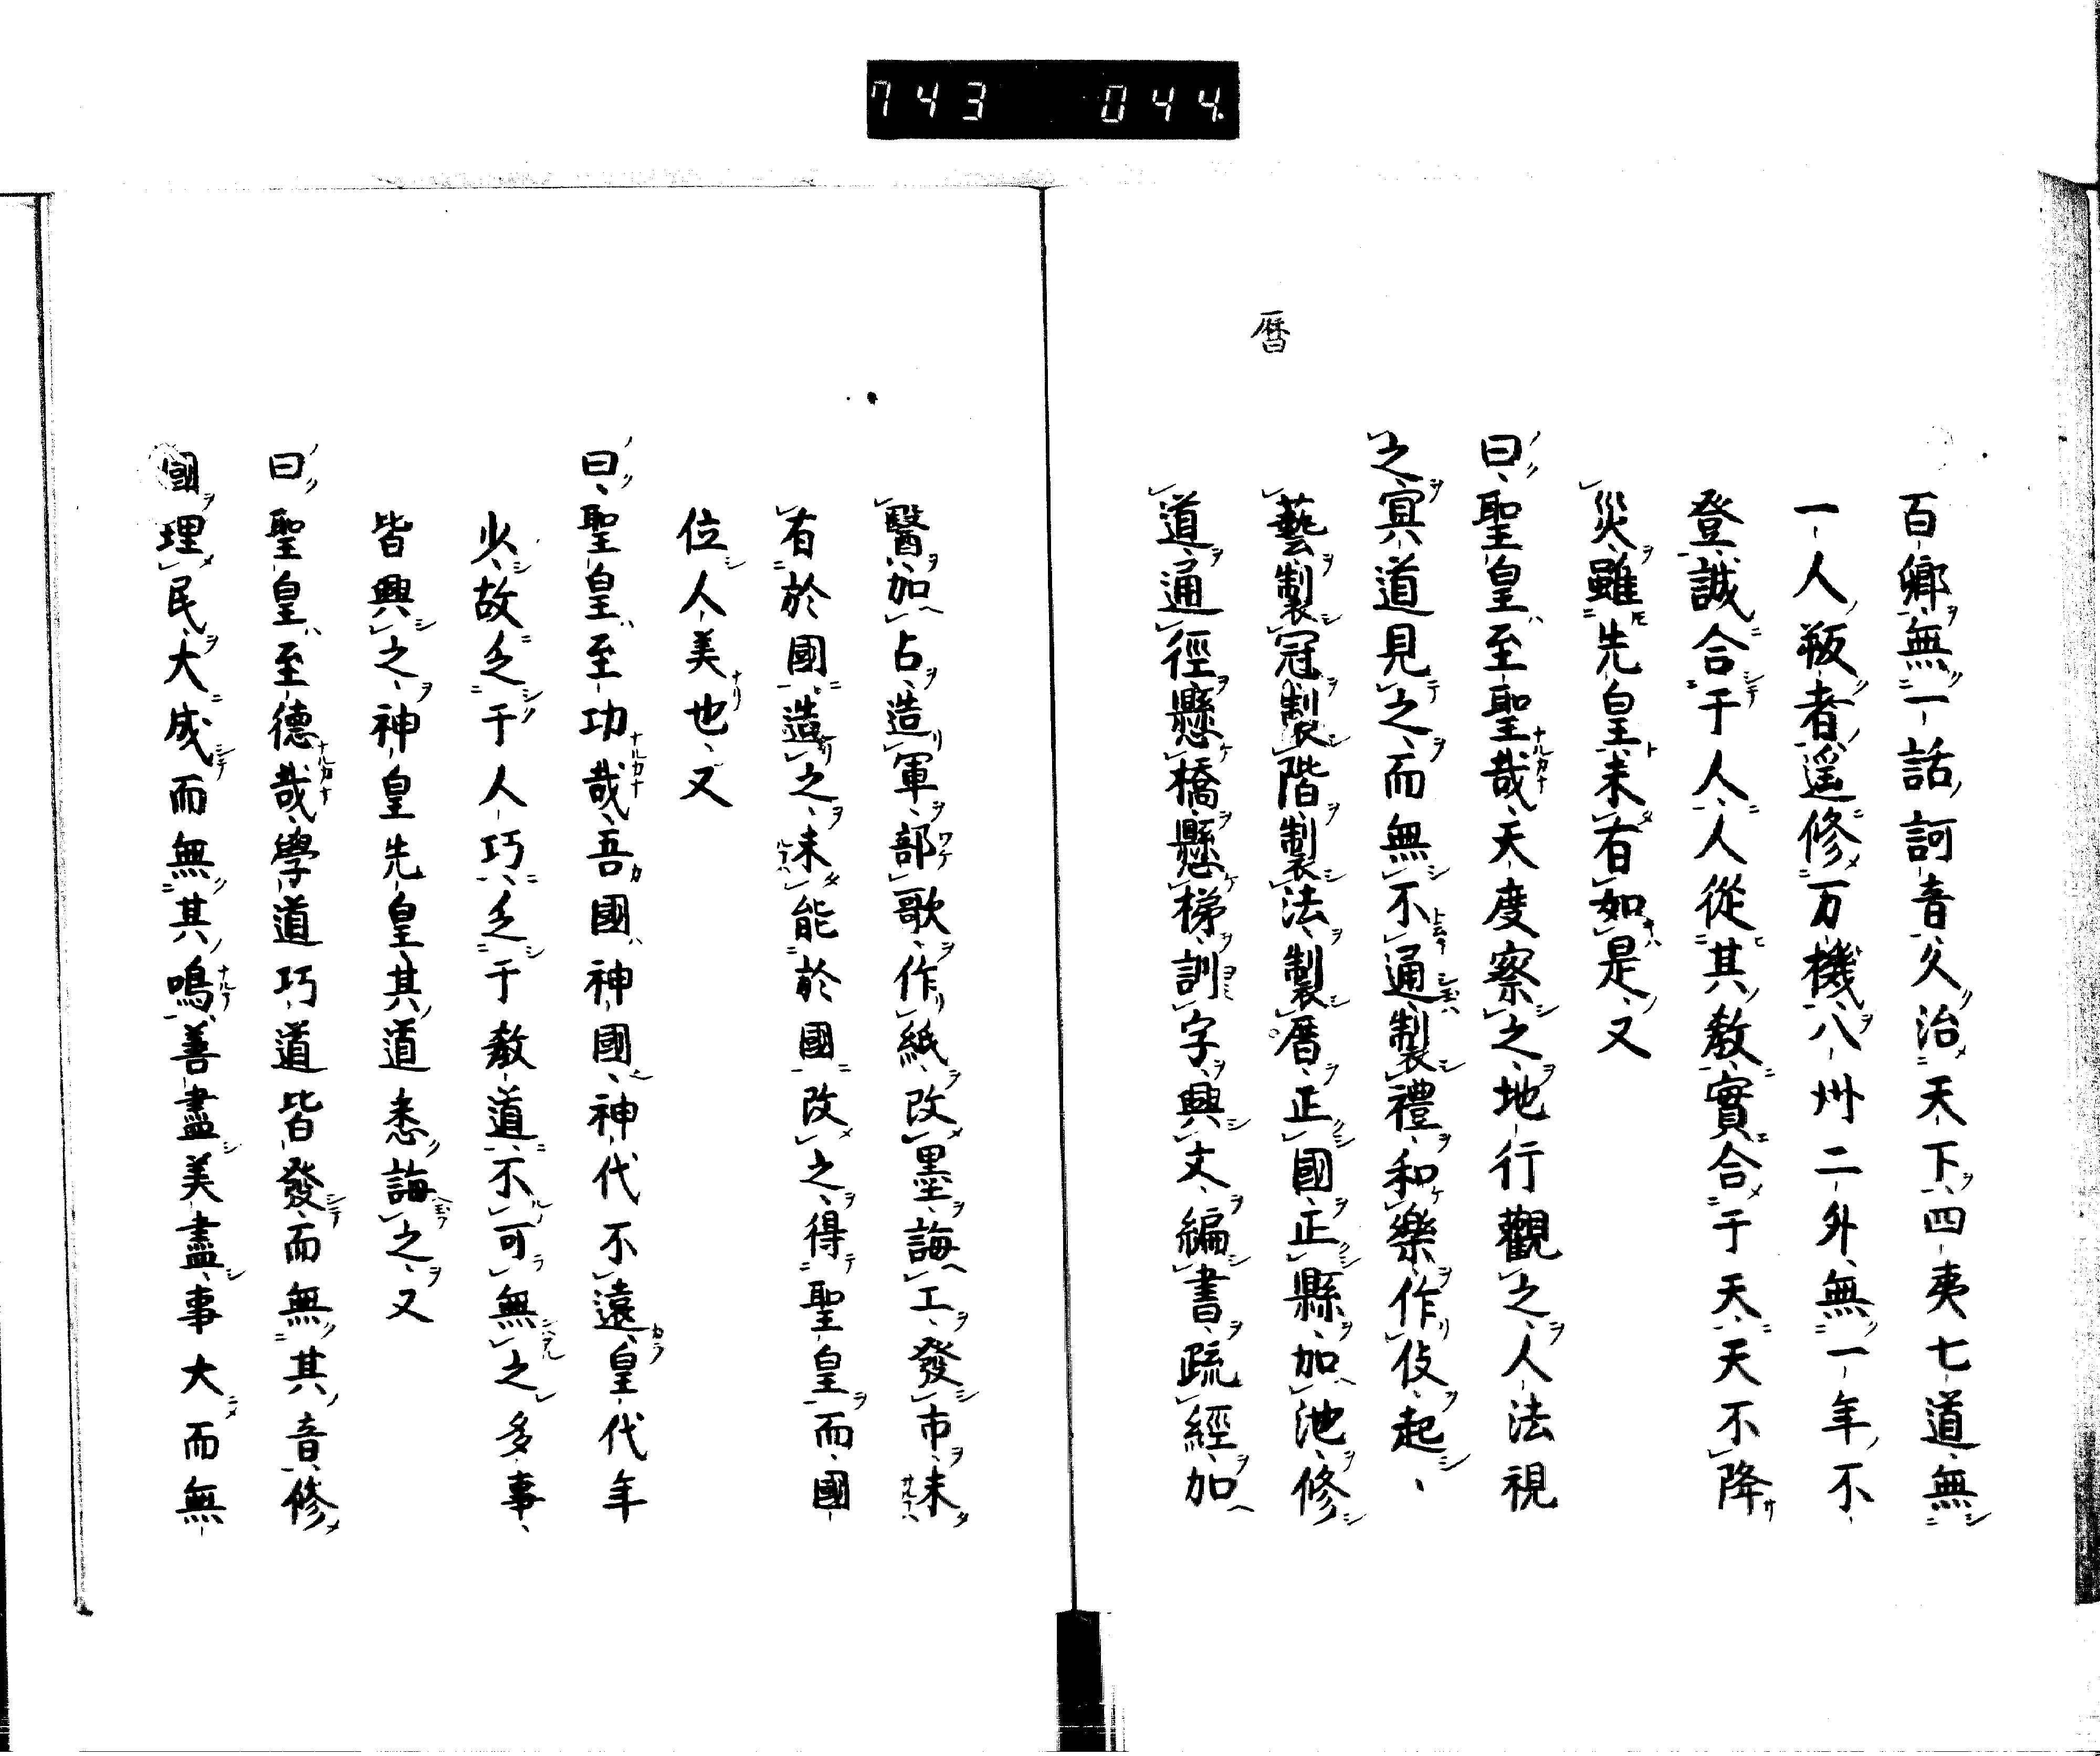 743 044.
百鄕無一話訶音久治天下四夷七道無
一人叛者遥修万機八州二外無一年不
登誠合于人人從其教實合于天天不降
災雖先皇未有如是又
曰聖皇至聖哉天度察之地行觀之人法視
之冥道見之而無不通製禮和樂作伎起
暦
藝製冠製階製法製暦正國正縣加池修
道通徑懸橋懸梯訓字興文編書疏經加
醫加占造軍部歌作紙改墨誨工發市未
有於國造之未能於國改之得聖皇而國
位人美也又
曰聖皇至功哉吾國神國神代不遠皇代年
少故乏于人巧乏于教道不可無之多事
皆興之神皇先皇其道悉誨之又
曰聖皇至德哉學道巧道皆發而無其音修
國理民大成而無其鳴善盡美盡事大而無